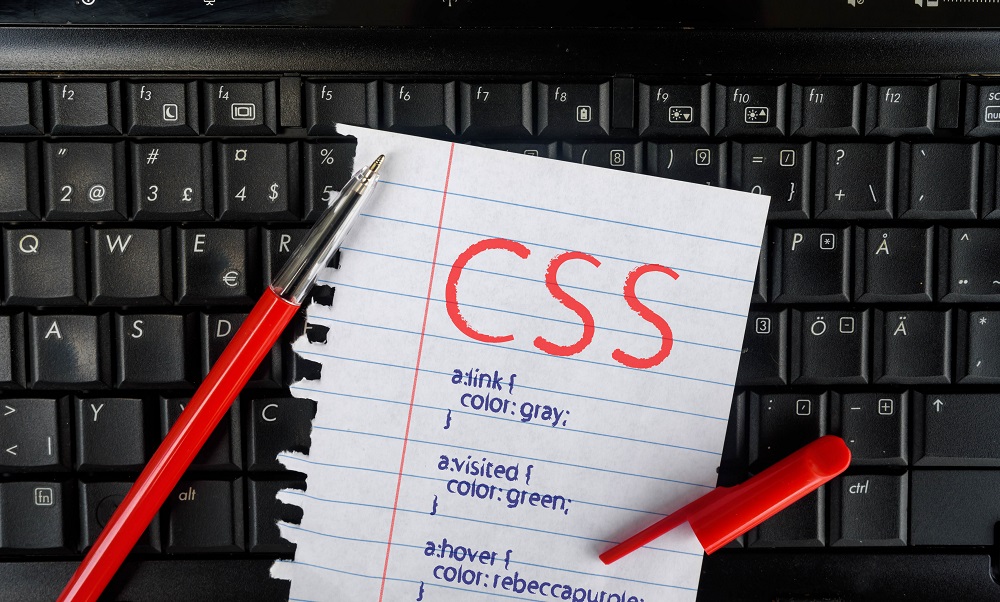 f2 f3 f4 f5 f6 f7 f8 f9 f10 f11 f12 sc
" # ¤ % ( 8 ) 9 = / ? `
2 @ 3 £ 4 $ 5 0 } + \ ,
Q W E R P * Å ^
€ ¨ ~
A S D 3 Ö - Ä *
> Y C : / - + ↑
< |
fn alt ctrl
CSS
a:link {
color: gray;
}
a:visited {
color: green;
}
a:hover {
color: rebeccapurple;
}